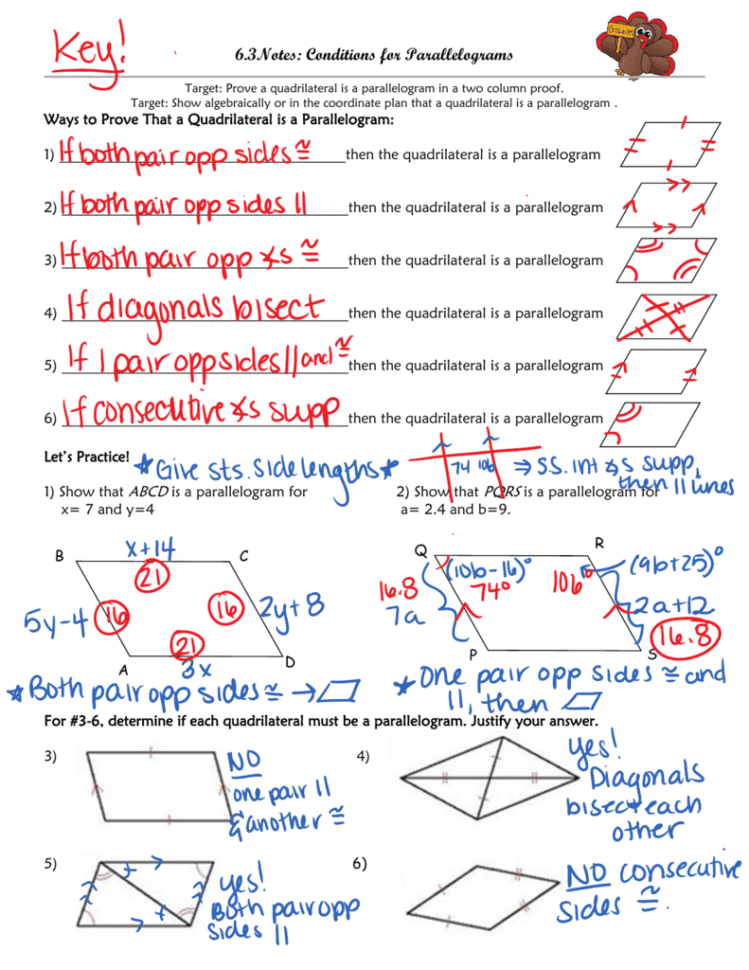 Key!
6.3 Notes: Conditions for Parallelograms
Target: Prove a quadrilateral is a parallelogram in a two column proof.
Target: Show algebraically or in the coordinate plan that a quadrilateral is a parallelogram .
Ways to Prove That a Quadrilateral is a Parallelogram:
1) If both pair opp sides ≅ then the quadrilateral is a parallelogram
2) If both pair opp sides || then the quadrilateral is a parallelogram
3) If both pair opp ∡s ≅ then the quadrilateral is a parallelogram
4) If diagonals bisect then the quadrilateral is a parallelogram
5) If 1 pair opp sides || and ≅ then the quadrilateral is a parallelogram
6) If consecutive ∡s supp then the quadrilateral is a parallelogram
Let's Practice! ★Give sts. side lengths★
74 106 ⇒ S.S. int ∡s supp,
then || lines
1) Show that ABCD is a parallelogram for
x= 7 and y=4
2) Show that PQRS is a parallelogram for
a= 2.4 and b=9.
B x+14 C
21
5y-4 16 16 2y+8
21
A 3x D
★Both pair opp sides ≅ → ▱
Q R
(10b-16)° (9b+25)°
16.8 74° 106°
7a 2a+12
P S 16.8
★One pair opp sides ≅ and
||, then ▱
For #3-6, determine if each quadrilateral must be a parallelogram. Justify your answer.
3) NO
one pair ||
& another ≅
4) yes!
Diagonals
bisect each
other
5) yes!
Both pair opp
sides ||
6) NO consecutive
sides ≅.